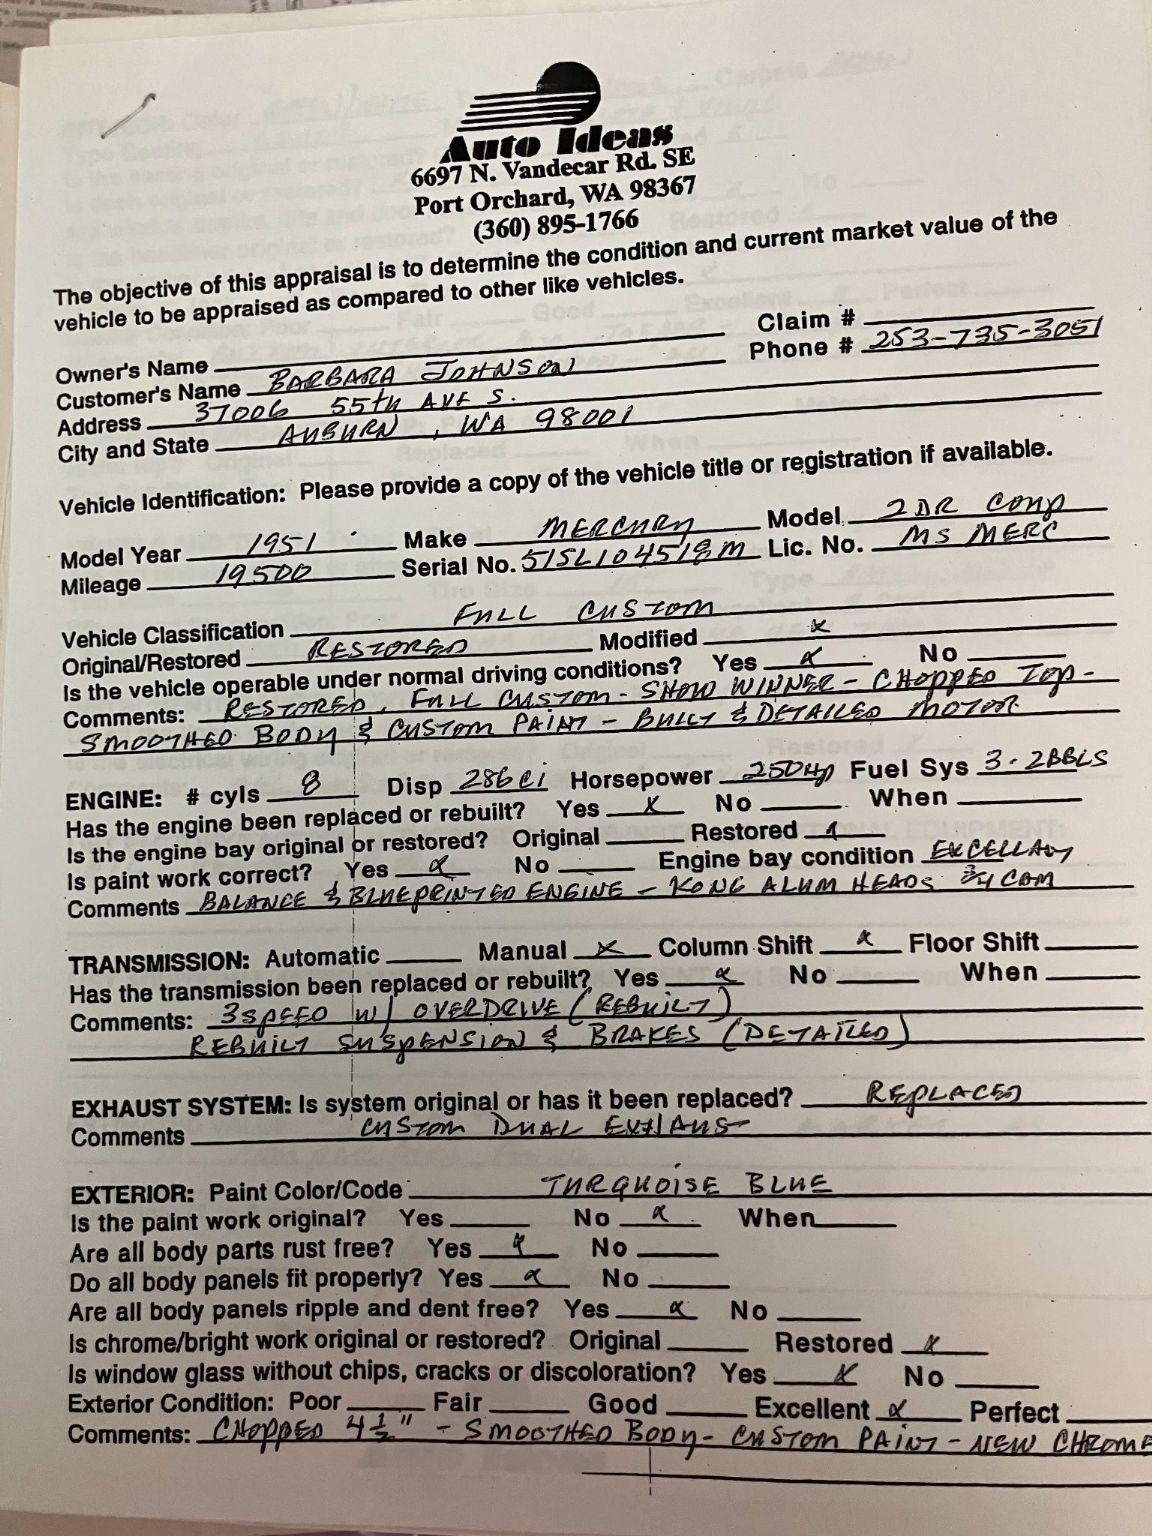 Auto Ideas
6697 N. Vandecar Rd. SE
Port Orchard, WA 98367
(360) 895-1766
The objective of this appraisal is to determine the condition and current market value of the
vehicle to be appraised as compared to other like vehicles.
Claim #
Owner's Name Phone # 253-735-3051
Customer's Name BARBARA JOHNSON
Address 37006 55th AVE S.
City and State AUBURN, WA 98001
Vehicle Identification: Please provide a copy of the vehicle title or registration if available.
Model Year 1951 Make MERCURY Model 2DR COUP
Mileage 19500 Serial No. 51SL104518M Lic. No. MS MERC
Vehicle Classification FULL CUSTOM
Original/Restored RESTORED Modified x
Is the vehicle operable under normal driving conditions? Yes x No
Comments: RESTORED, FULL CUSTOM - SHOW WINNER - CHOPPED TOP -
SMOOTHED BODY & CUSTOM PAINT - BUILT & DETAILED MOTOR
ENGINE: # cyls 8 Disp 286 CI Horsepower 250 HP Fuel Sys 3-2BBLS
Has the engine been replaced or rebuilt? Yes x No When
Is the engine bay original or restored? Original Restored x
Is paint work correct? Yes x No Engine bay condition EXCELLANT
Comments BALANCE & BLUEPRINTED ENGINE - KONG ALUM HEADS 3/4 CAM
TRANSMISSION: Automatic Manual x Column Shift x Floor Shift
Has the transmission been replaced or rebuilt? Yes x No When
Comments: 3 SPEED W/ OVERDRIVE (REBUILT)
REBUILT SUSPENSION & BRAKES (DETAILED)
EXHAUST SYSTEM: Is system original or has it been replaced? REPLACED
Comments CUSTOM DUAL EXHAUST
EXTERIOR: Paint Color/Code TURQUOISE BLUE
Is the paint work original? Yes No x When
Are all body parts rust free? Yes x No
Do all body panels fit properly? Yes x No
Are all body panels ripple and dent free? Yes x No
Is chrome/bright work original or restored? Original Restored x
Is window glass without chips, cracks or discoloration? Yes x No
Exterior Condition: Poor Fair Good Excellent x Perfect
Comments: CHOPPED 4½" - SMOOTHED BODY - CUSTOM PAINT - NEW CHROME